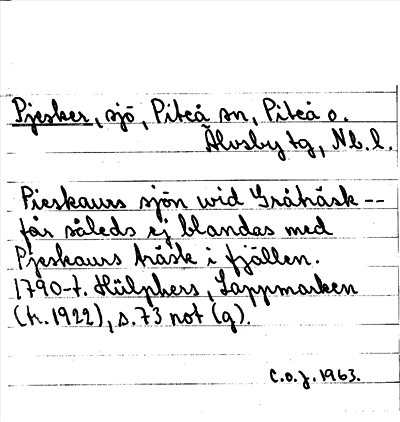 Pjesker, sjö, Piteå sn, Piteå o.
Älvsby tg, Nb. l.
Pieskaurs sjön wid Gråträsk --
får således ej blandas med
Pjeskaurs träsk i fjällen.
1790-t. Hülphers, Lappmarken
(tr. 1922), s. 73 not (q).
C.O.J. 1963.